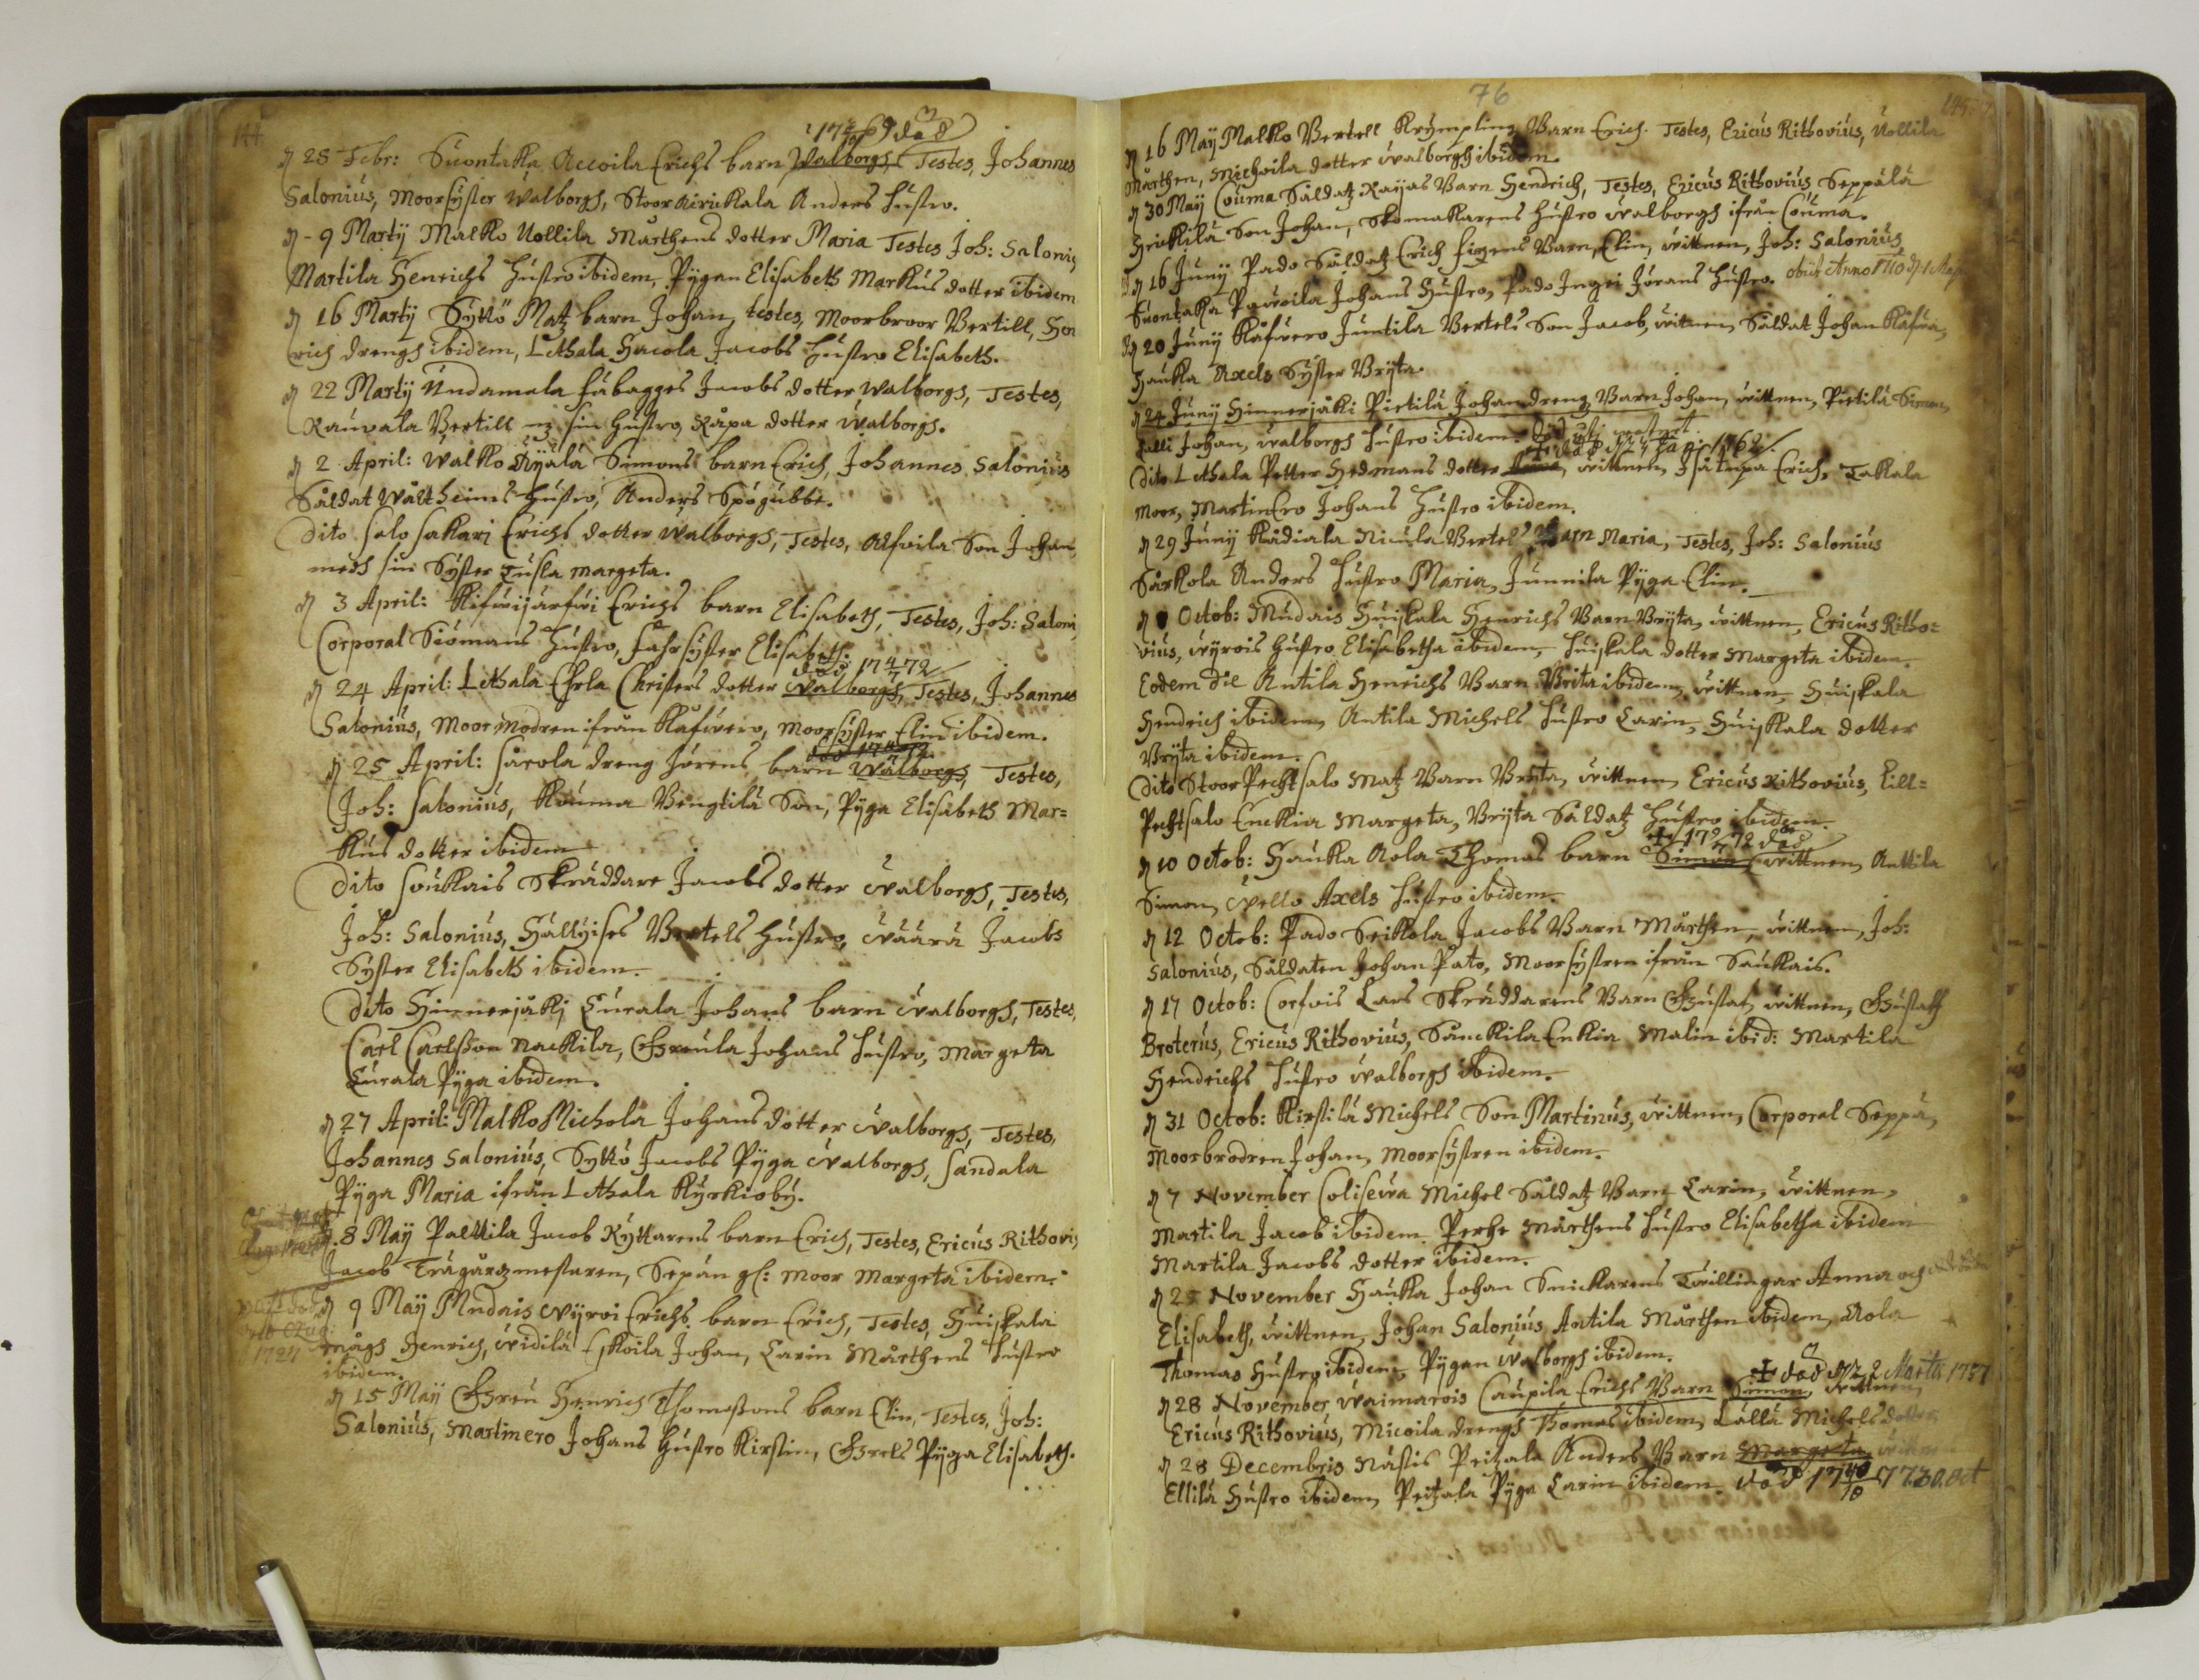 144
28 Febr: Suontaka Accoila Erichs barn Walborgh, Testes, Johannes
Salonius, Moorsyster Walborgh, Stoor Hustro.
9 Martij Malko Uollila Mårthens dotter Maria Testes Joh: Saloni
Martila Henrichs Hustro ibidem, Pygan Elisabeth Markus dotter ibidem
16 Martij Sykkö Matz barn Johan, testes, Moorbroor Bertill, Hen
rich drengh ibidem, Lethala Hacola Jacobs Hustro Elisabeth.
22 Martij Undamala Jacobs dotter Walborgh, Testes,
Rauvala Bertill sin Hustro, dotter Walborgh.
2 April: Walko Simons barn Erich, Johannes Salonius
Såldat Hustro, Anders
Dito Salo Sakari Erichs dotter Walborgh, Testes, Alfvila Son Johan,
medh sin Syster Margeta.
3 April: Erichs barn Elisabeth, Testes, Joh: Saloni
Corporal Siömans Hustro, Fahrsyster Elisabeth.
död 17 4/7 72
24 April: Lethala Christers dotter Walborgh, Testes, Johannes
Salonius, Moor Modren ifrån Kåfwero, Moorsyster Elin ibidem.
25 April: dreng Jörens barn Walborgh, Testes,
Joh: Salonius, Kouma Bengtilä Son, Pyga Elisabeth Mar=
kus dotter ibidem
Dito Soukais Skräddare Jacobs dotter Walborgh, Testes,
Joh: Salonius, Bertels Hustro, Wäärä Jacobs
Syster Elisabeth ibidem.
Dito Hinnerjäki Eurala Johans barn Walborgh, Testes,
Carl Carlsson Nackila, Johans Hustro, Margeta
Eurala Pyga ibidem.
27 April: Malko Michola Johans dotter Walborgh, Testes,
Johannes Salonius, Sykkö Jacobs Pyga Walborgh, Sandala
Pyga Maria ifrån Lethala Kyrkioby.
8 May Palttila Jacob Ryttarens barn Erich, Testes, Ericus Rithovi
Jacob Trägårdzmestaren, Moor Margeta ibidem.
9 May Mudais Wyrvi Erichs barn Erich, Testes, Huiskala
mågh Henrich, Widilä Johan, Carin Mårthens Hustro
ibidem.
1727
15 May Henrich Thomassons barn Elin, Testes, Joh:
Salonius, Martinero Johans Hustro Kirstin, Pyga Elisabeth.
76
145
16 May Malko Bertell Krympling Barn Erich. Testes, Ericus Rithovius, Uollila
Mårthen, Michoila dotter Walborgh ibidem.
30 May Couma Såldatz Barn Hendrich, Testes, Ericus Rithovius, Seppälä
Son Johan, Skomakarens Hustro Walborgh ifrån Couma.
16 Junij Pado Såldatz Erich Barn, Elin, wittnen, Joh: Salonius
Suontaka Pawoila Johans Hustro, Pado Ingri Jörans Hustro. obiit Anno 1710
20 Junij Kåfwero Juntila Bertels Son Jacob, witnen, Såldat Johan Kåfwa,
Hauka Axels Syster Bryta.
24 Junij Hinnerjäki Pietilä Johan dreng Barn Johan, wittnen, Pietilä Simon,
Lilli Johan, Walborgh Hustro ibidem.
Dito Lethala Petter Hedmans dotter wittnen, Erich, Takala
Moor, Martinero Johans Hustro ibidem.
29 Junij Kådiala Nicula Bertels Barn Maria, Testes, Joh: Salonius
Särkola Anders Hustro Maria, Junnila Pyga Elin.
Octob: Mudais Huiskala Henrichs Barn Bryta, wittnen, Ericus Ritho=
vius, Wyrvis Hustro Elisabetha ibidem, Huiskala dotter Margeta ibidem.
Eodem die Antila Henrichs Barn Brita ibidem, wittnen, Huiskala
Hendrich ibidem, Antila Michels Hustro Carin, Huiskala dotter
Bryta ibidem.
Dito Stoor Pechtsalo Matz Barn Bryta, wittnen, Ericus Rithovius, Lill=
Pechtsalo Enckia Margeta, Bryta Såldatz Hustro ibidem.
10 Octob: Hauka Aola Thomas barn Simon wittnen, Anttila
Simon, Axels Hustro ibidem.
12 Octob: Pado Seikkola Jacobs Barn Mårthen, wittnen, Joh:
Salonius, Såldaten Johan Pato, Moorsystren ifrån Saukais.
17 Octob: Corfvis Lars Skräddarens Barn Gustaf, wittnen, Gustaff
Broterus, Ericus Rithovius, Enkia Malin ibid: Martila
Hendrichs Hustro Walborgh ibidem.
31 Octob: Kirstilä Michels Son Martinus, wittnen, Corporal Seppä,
Moorbrodren Johan, Moorsystren ibidem.
7 November Michel Såldatz Barn Carin, wittnen,
Martila Jacob ibidem, Perhe Mårthens Hustro Elisabetha ibidem
Martila Jacobs dotter ibidem.
25 November Hauka Johan Snickarens Twillingar Anna och
Elisabeth, wittnen, Johan Salonius, Antila Mårthen ibidem, Aola
Thomas Hustro ibidem, Pygan Walborgh ibidem.
28 November Waimarois Caupila Erichs Barn Simon, wittnen,
Ericus Rithovius, Micoila drengh Thomas ibidem, Lällä Michels dotter
28 Decembris Nästis Peitzala Anders Barn Margeta,
Ellilä Hustro ibidem, Peitzala Pyga Carin ibidem.